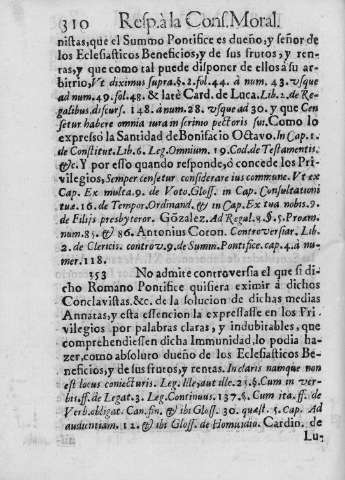 310 Resp. à la Cons. Moral.
nistas, que el Summo Pontifice es dueño, y señor de
los Eclesiasticos Beneficios, y de sus frutos, y ren-
tas, y que como tal puede disponer de ellos à su ar-
bitrio, Vt diximus supra. §. 2. fol. 44. à num. 43. vsque
ad num. 49. fol. 48. & latè Card. de Luca. Lib. 2. de Re-
galibus. discurs. 148. à num. 28. vsque ad 30. y que Cen
setur habere omnia iura in scrinio pectoris sui. Como lo
expressò la Santidad de Bonifacio Octavo. In Cap. 1.
de Constitut. Lib. 6. Leg. Omnium. 19. Cod. de Testamentis.
&c. Y por esso quando responde, ò concede los Pri-
vilegios, Semper censetur considerare ius commune. Vt ex
Cap. Ex multa. 9. de Voto. Gloss. in Cap. Consultationi
tuæ. 16. de Tempor. Ordinand. & in Cap. Ex tua nobis. 9.
de Filijs presbyteror. Gõzalez. Ad Regal. 8. §. 5. Proæm.
num. 85. & 86. Antonius Coron. Controversiar. Lib.
2. de Clericis. controv. 9. de Summ. Pontifice. cap. 4. à nu-
mer. 118.
353 No admite controversia el que si di-
cho Romano Pontifice quisiera eximir à dichos
Conclavistas. &c. de la solucion de dichas medias
Annatas, y esta essencion la expressasse en los Pri-
vilegios por palabras claras, y indubitables, que
comprehendiessen dicha Immunidad, lo podia ha-
zer, como absoluto dueño de los Eclesiasticos Be-
neficios, y de sus frutos, y rentas. In claris namque non
est locus coniecturis. Leg. Ille, aut ille. 25. §. Cum in ver-
bis. ff. de Legat. 3. Leg. Continuus. 137. §. Cum ita. ff. de
Verb. obligat. Can. fin. & ibi Gloss. 30. quæst. 5. Cap. Ad
audientiam. 12. & ibi Gloss. de Homicidio. Cardin. de
Lu-